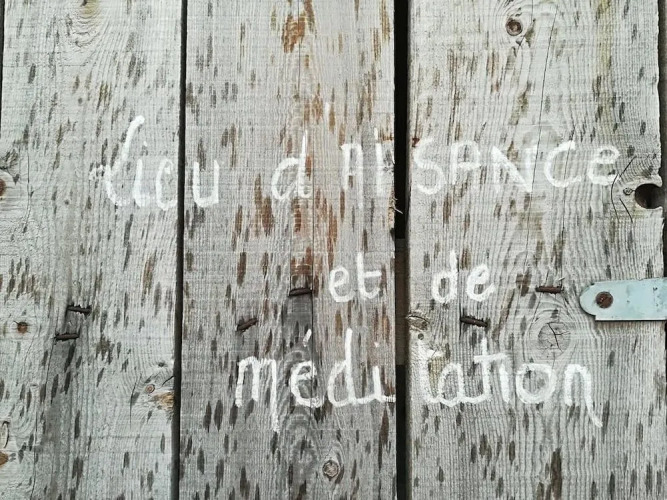 Lieu d'AISANCe
et de
méditation